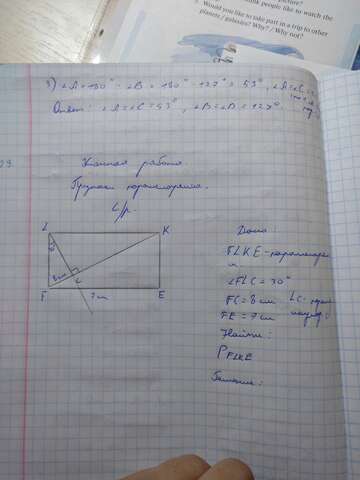 think people like to watch the
5. Would you like to take part in a trip to other
planets / galaxies? Why? / Why not?
3) ∠A = 180° - ∠B = 180° - 127° = 53°, ∠A=∠C
Ответ: ∠A=∠C=53°, ∠B=∠D=127°.
работа.
с/р
L
K
30°
8 см
C
F
7 см
E
Дано
FLKE -
∠FLC = 30°
FC = 8 см LC -
FE = 7 см
Найти:
P FLKE
Решение: